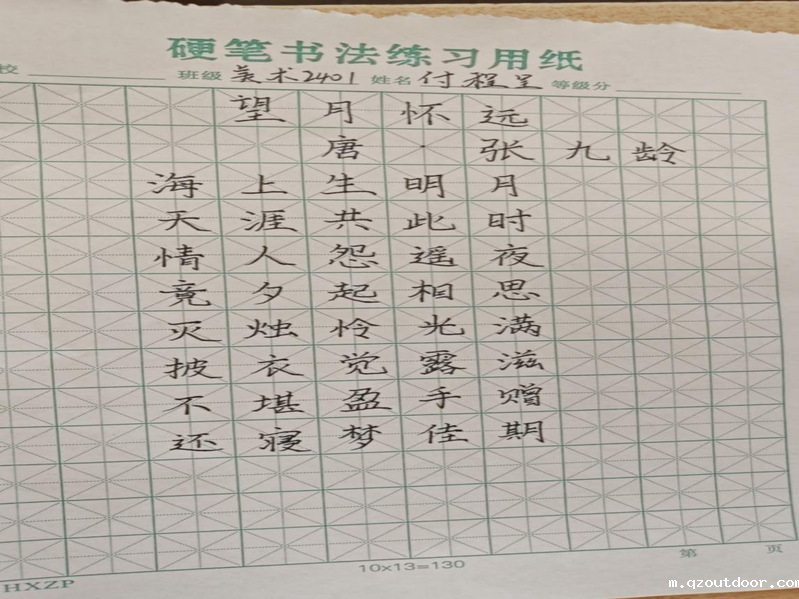 硬笔书法练习用纸
校 班级 美术2401 姓名 付程呈 等级分
望月怀远
唐·张九龄
海上生明月
天涯共此时
情人怨遥夜
竟夕起相思
灭烛怜光满
披衣觉露滋
不堪盈手赠
还寝梦佳期
HXZP 10x13=130 第 页
m.qzoutdoor.com